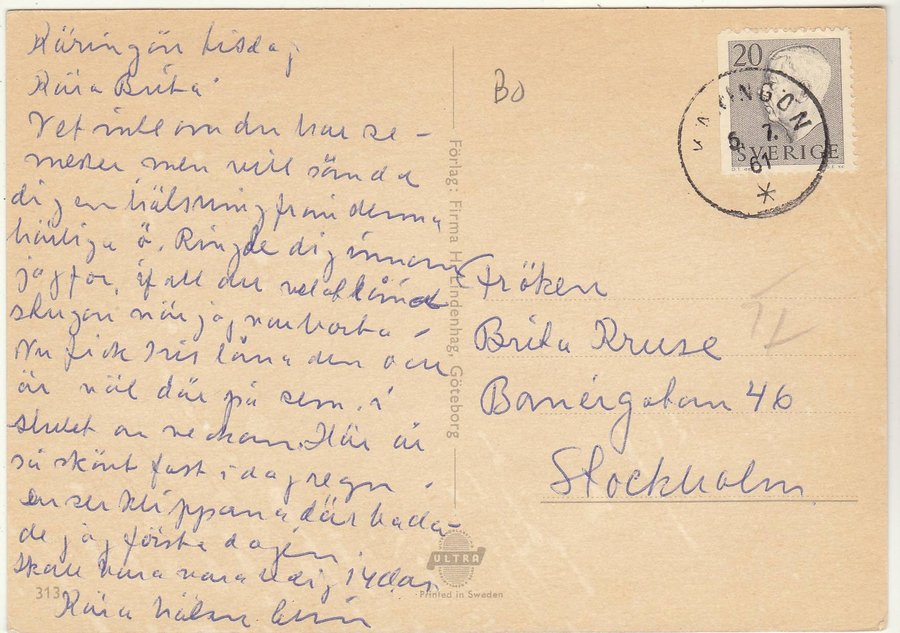 Käringön tisdag
Kära Brita!
Vet inte om du har se-
mester men vill sända
dig en hälsning från denna
härliga ö. Ringde dig innan
jag for, if all du velat låna
stugan när jag var borta.
Nu fick Iris låna den och
är väl där på sem. i
slutet av veckan. Här är
så skönt fast i dag regn.
klipporna där bada-
de jag första dagen.
Skall vara 14 dar.
Kära hälsn.
BO
20
KÄRINGÖN
6. 7.
61
SVERIGE
Fröken
Brita Kruse
Banérgatan 46
Stockholm
Förlag: Firma H. Lindenhag, Göteborg
ULTRA
Printed in Sweden
313